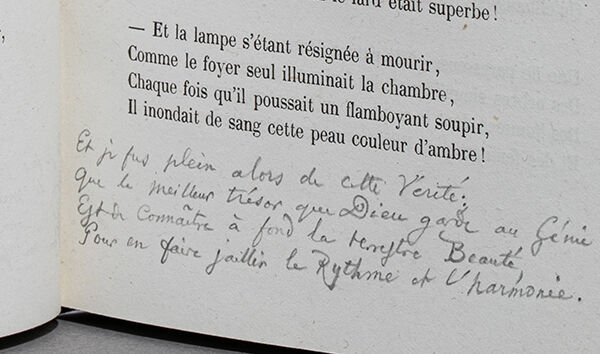 le fard était superbe !
— Et la lampe s'étant résignée à mourir,
Comme le foyer seul illuminait la chambre,
Chaque fois qu'il poussait un flamboyant soupir,
Il inondait de sang cette peau couleur d'ambre !
Et je fus plein alors de cette Vérité:
que le meilleur trésor que Dieu garde au Génie
Est de Connaître à fond la terrestre Beauté
Pour en faire jaillir le Rythme et l'harmonie.